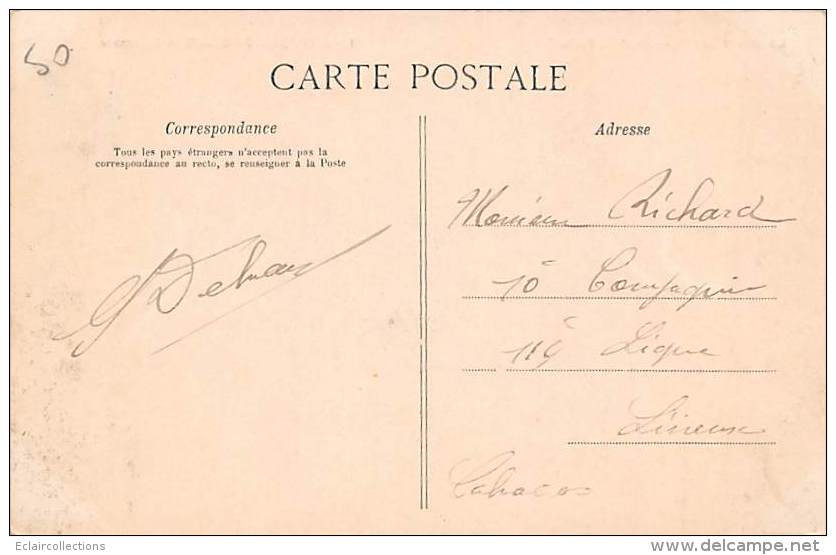 50
CARTE POSTALE
Correspondance
Tous les pays étrangers n'acceptent pas la
correspondance au recto, se renseigner à la Poste
Adresse
Richard
10e Compagnie
119 Ligne
Lisieux
Eclaircollections
www.delcampe.net